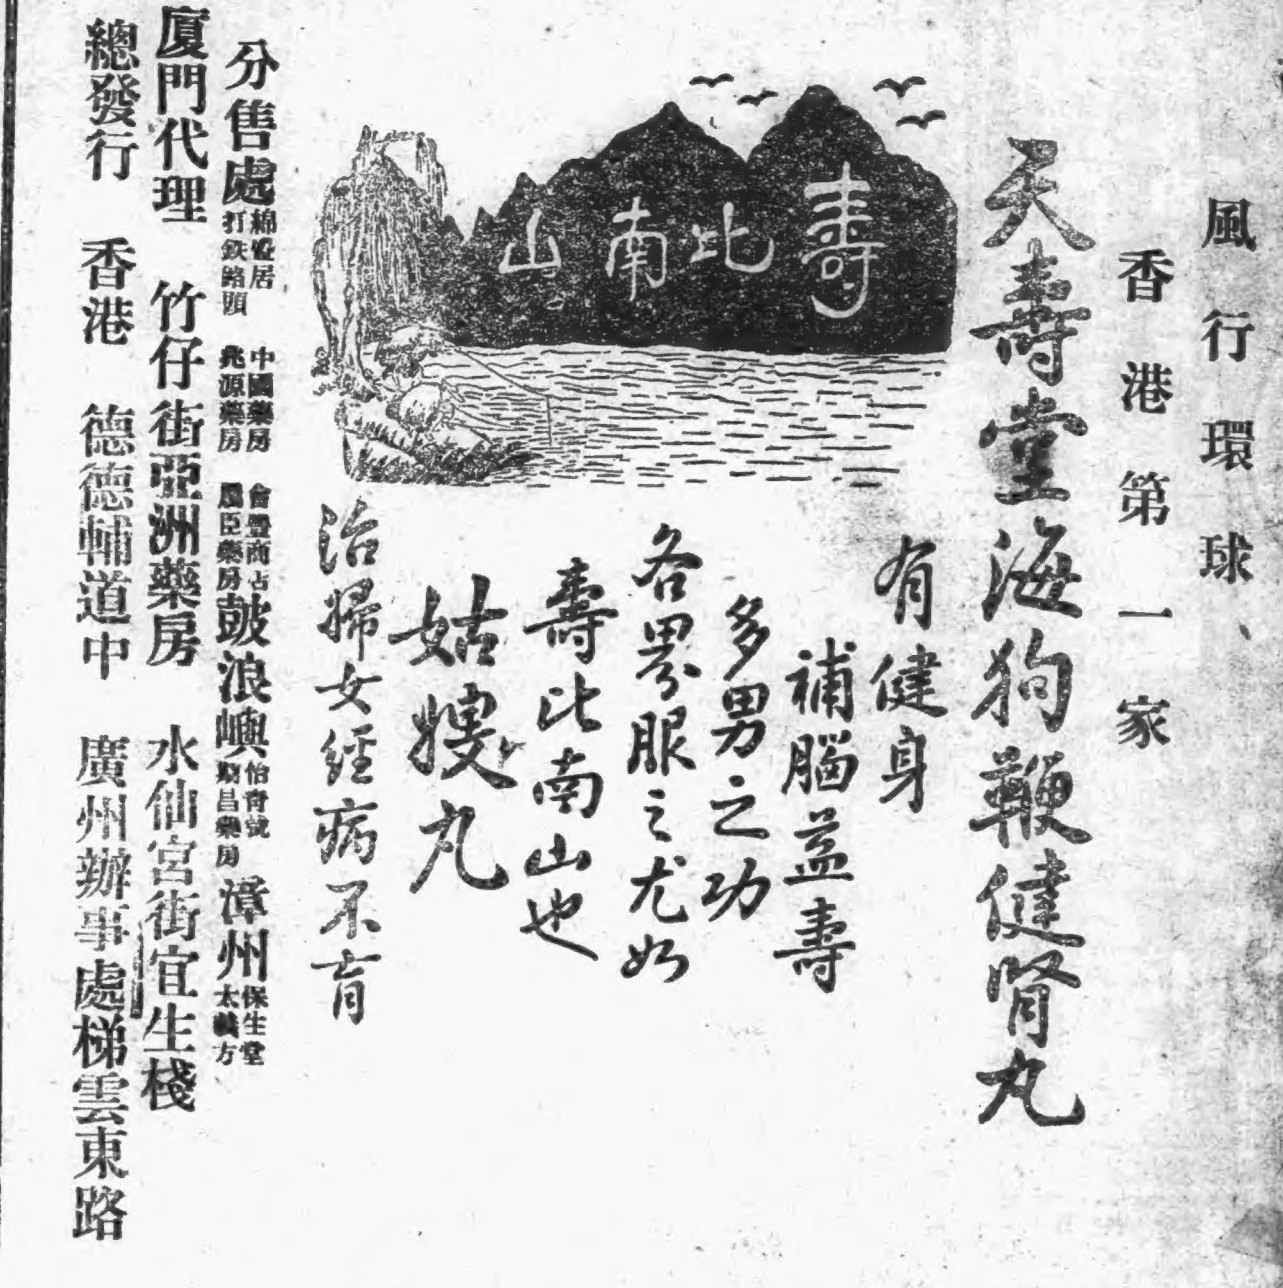 風行環球
香港第一家
天壽堂海狗鞭健腎丸
壽比南山
有健身
補腦益壽
多男之功
各界服之尤如
壽比南山也
姑嫂丸
治婦女經病不育
分售處
打鉄路頭
中國藥房
兆源藥房
鼓浪嶼
漳州
保生堂
廈門代理 竹仔街亞洲藥房 水仙宮街宜生棧
總發行 香港 德德輔道中 廣州辦事處梯雲東路